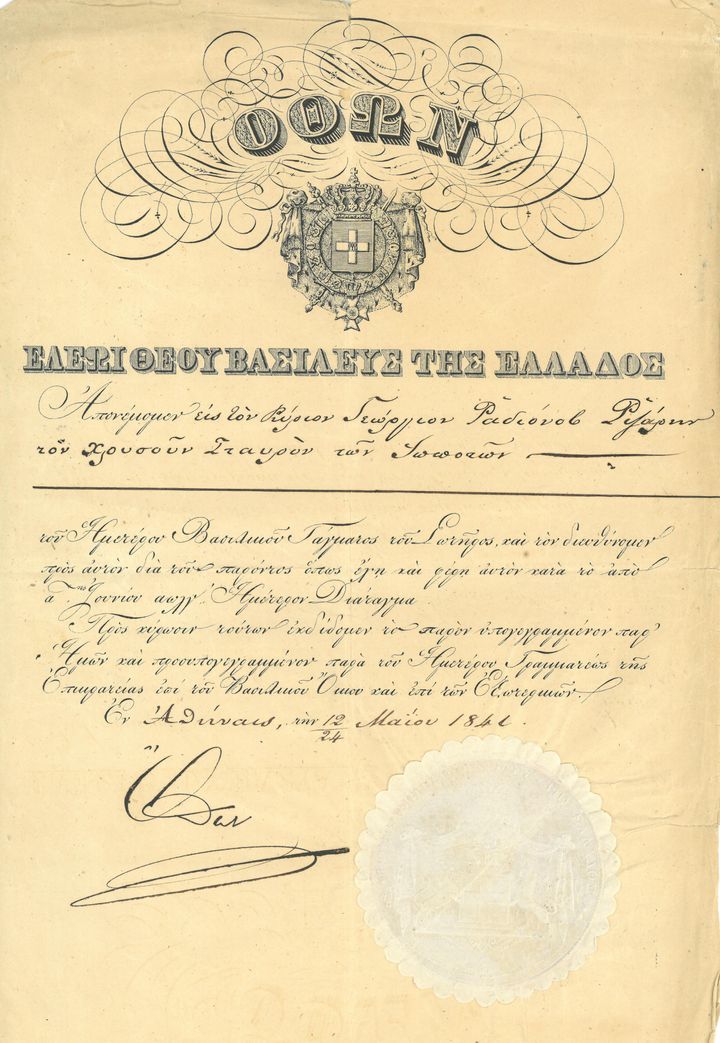 ΟΘΩΝ
ΕΛΕΩι ΘΕΟΥ ΒΑΣΙΛΕΥΣ ΤΗΣ ΕΛΛΑΔΟΣ
Ἀπονέμομεν εἰς τὸν Κύριον Γεώργιον Ραδιόνοβ Ριζάρην
τὸν Χρυσοῦν Σταυρὸν τῶν Ἱπποτῶν
τοῦ Ἡμετέρου Βασιλικοῦ Τάγματος τοῦ Σωτῆρος, καὶ τὸν διευθύνομεν
πρὸς αὐτὸν διὰ τοῦ παρόντος ὅπως ἔχῃ καὶ φέρῃ αὐτὸν κατὰ τὸ ἀπὸ
ἃ.ης Ἰουνίου αωλγʹ. Ἡμέτερον Διάταγμα.
Πρὸς κύρωσιν τούτων ἐκδίδομεν τὸ παρὸν ὑπογεγραμμένον παρ'
Ἡμῶν καὶ προσυπογεγραμμένον παρὰ τοῦ Ἡμετέρου Γραμματέως τῆς
Ἐπικρατείας ἐπὶ τοῦ Βασιλικοῦ Οἴκου καὶ ἐπὶ τῶν Ἐξωτερικῶν.
Ἐν Ἀθήναις, τὴν 12/24 Μαΐου 1841.
Ὄθων